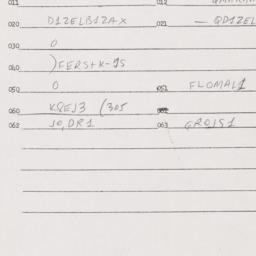 011 012
020 D1ZELB1ZAX 021 — QD1ZEL
030 0
040 )FERS+K-95
050 0 051 FLOMAL1
060 K8EJ3 (305
062 JO,DR1 063 GROJS1